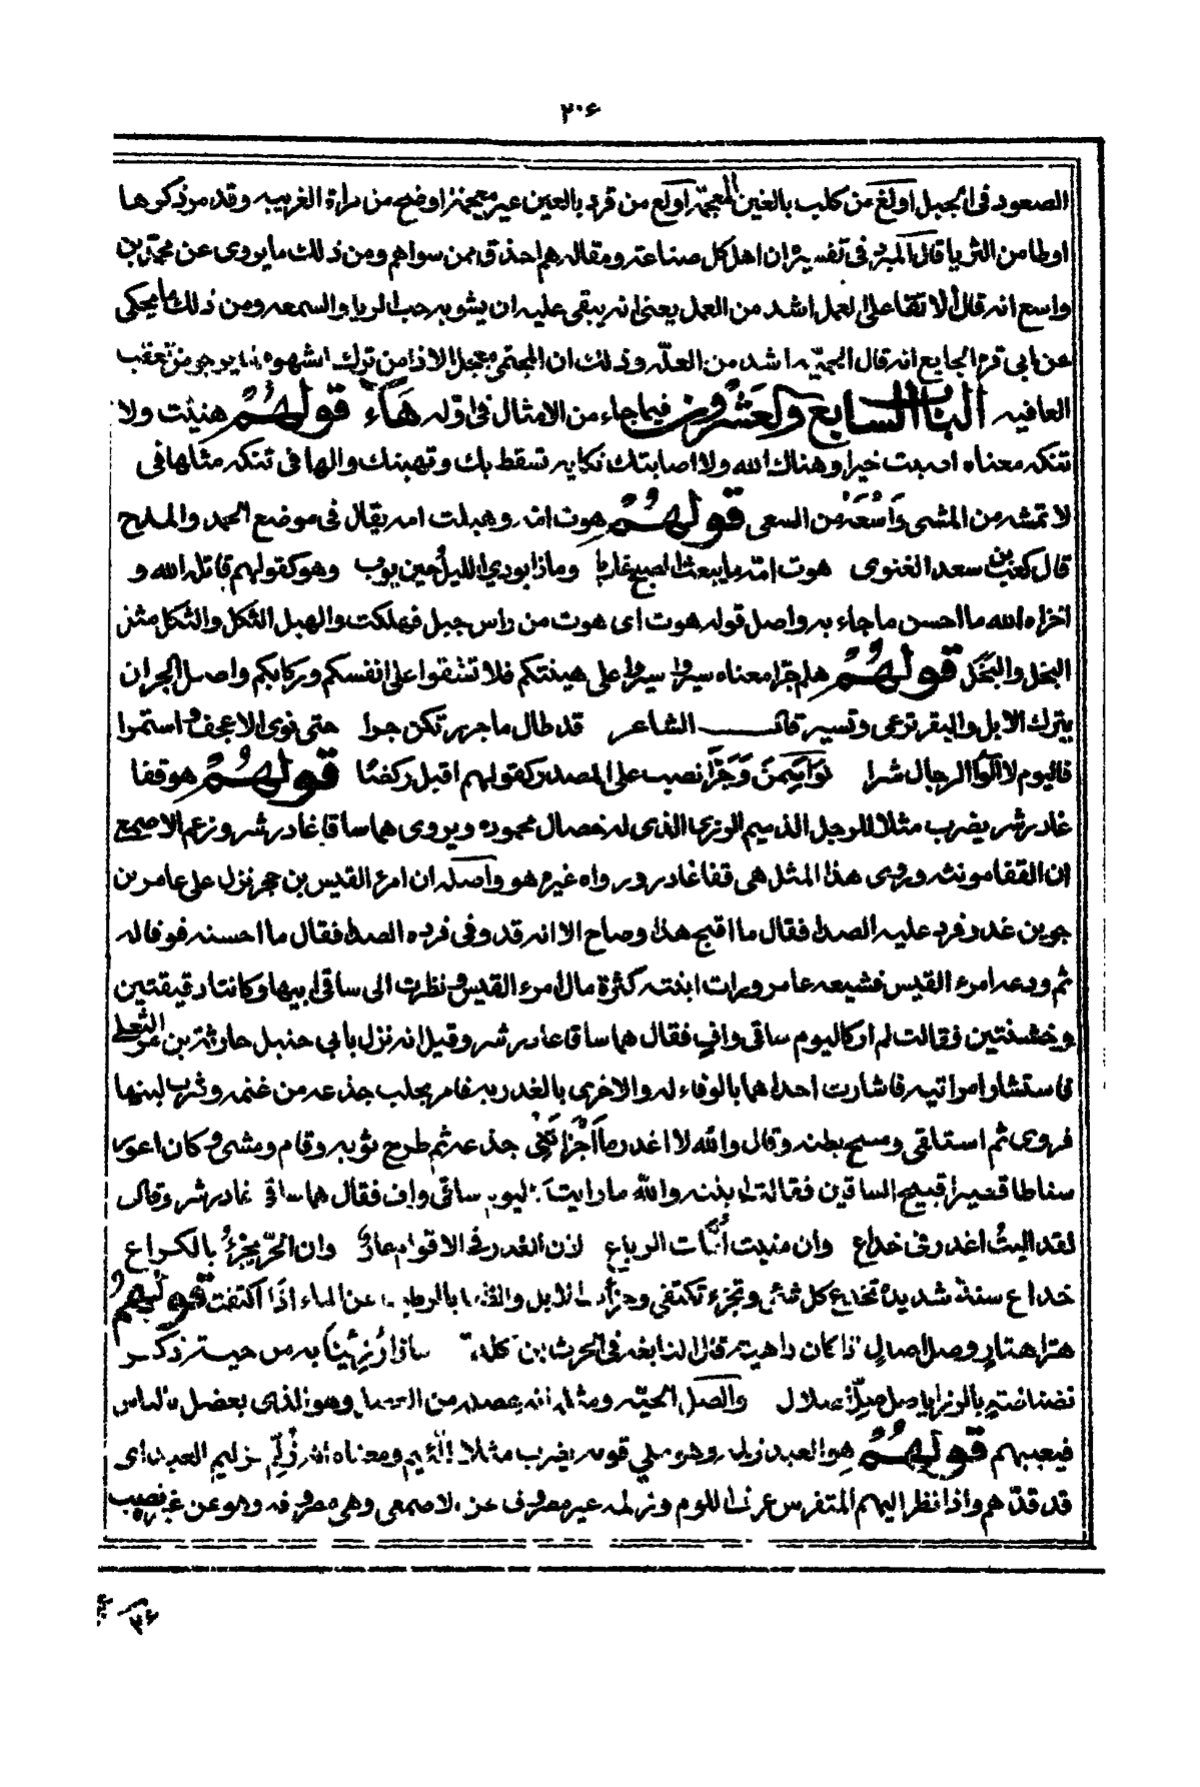 ٢٠٤
الصعود فى الجبل اولغ من كلب بالغين المعجمة اولع من قرد بالعين غير معجمة اوضح من مراة الغريبه وقد مر ذكرها
اوطا من الثريا قال المبرد فى تفسيره ان اهل كل صناعة ومقاله هم احذق ممن سواهم ومن ذلك ما يروى عن محمد بن
واسع انه قال الاتقا على العمل اشد من العمل يعنى انه يبقى عليه ان يشوبه حب الريا والسمعه ومن ذلك ما يحكى
عن ابى قرة الجايع انه قال الحميّه اشد من العلّه وذلك ان المحتمى معجل الاذا من ترك الشهوه لما يرجو من تعقب
العافيه الباب السابع والعشرون فيما جاء من الامثال فى اوّله هَاء قولهم هنيّت ولا
تنكه معناه اصبت خيرا وهناك الله ولا اصابتك نكايه تسقط بك وتهينك والها فى تنكه مثلها فى
لا تمشه من المشى وَاسْعَهْ من السعى قولهم هوت امه وهبلت امه يقال فى موضع الحمد والمدح
قال كعب بن سعد الغنوى هوت امّه ما يبعث الصبح غاديا وماذا يودي الليل حين يوب وهو كقولهم قاتله الله و
اخزاه الله ما احسن ما جاء به واصل قوله هوت اى هوت من راس جبل فهلكت والهبل الثكل والثكل مثل
البخل والبَخَل قولهم هلم جرّا معناه سيروا سيروا على هينتكم فلا تشقوا على انفسكم وركابكم واصل الجر ان
يترك الابل والبقر ترعى وتسير قال الشاعر قد طال ما جررتكن جرا حتى نوى الاعجف واستمرا
فاليوم لا آلوا الرجال شرا نصب على المصدر كقولهم اقبل ركضًا قولهم هو قفا
غادر شر يضرب مثلا للرجل الذميم الوزى الذى له خصال محموده ويروى هما ساقا غادر شر وزعم الاصمع
ان القفا مونثه وروى هذا المثل هى قفا غادر ورواه غيره هو واصله ان امرء القيس بن حجر نزل على عامر بن
جوين غدر فرد عليه الصدا فقال ما اقبح هذا وصاح الا انه قد وفى فرده الصدا فقال ما احسنه فوفا له
ثم ودعه امرء القيس فشيعه عامر ورات ابنته كثرة مال امرء القيس ونظرت الى ساقى ابيها وكانتا دقيقتين
وخشنتين فقالت لم ار كاليوم ساقى وافٍ فقال هما ساقا غادر شر وقيل انه نزل بابى حنبل حارثة بن مر الثعلى
فاستشار امراتيه فاشارت احداهما بالوفاء له والاخرى بالغدر به فامر بحلب جذعه من غنمه وشرب لبنها
فروى ثم استلقى ومسح بطنه وقال والله لا اغدر ما اَجْزَاتْنِى جذعه ثم طرح ثوبه وقام ومشى وكان اعور
سناطا قصيرا قبيح الساقين فقالت ابنته والله ما رايت كاليوم ساقى واف فقال هما ساقا غادر شر وقال
لقد اليتُ اغدر فى خداع وان منيت اُمّات الرباع لان الغدر فى الاقوام عارٌ وان الحرّ يجزءُ بالكراع
خداع سنة شديدة تخدع كل شئ وتجزء تكتفى وجزأت الابل والغنم بالرطب عن الماء اذا اكتفت قولهم
هتر اهتارٍ وصل اصالٍ اذا كان داهيه قال النابغه فى الحرث بن كلده ماذا رُزِئْنا به من حية ذكر
نضناضة بالرزايا صل اصلال والصل الحيّه وهو الذى يعضل بالناس
فيعييهم قولهم هو العبد زلمه وهو يضرب مثلا للئيم ومعناه انه زُلِّم تزليم العبد اى
قد قدّ هم واذا نظر اليهم المتفرس عرف اللوم وزلمه غير مصروف عن الاصمعى وهى مصروفه وهو عن غيره نصب